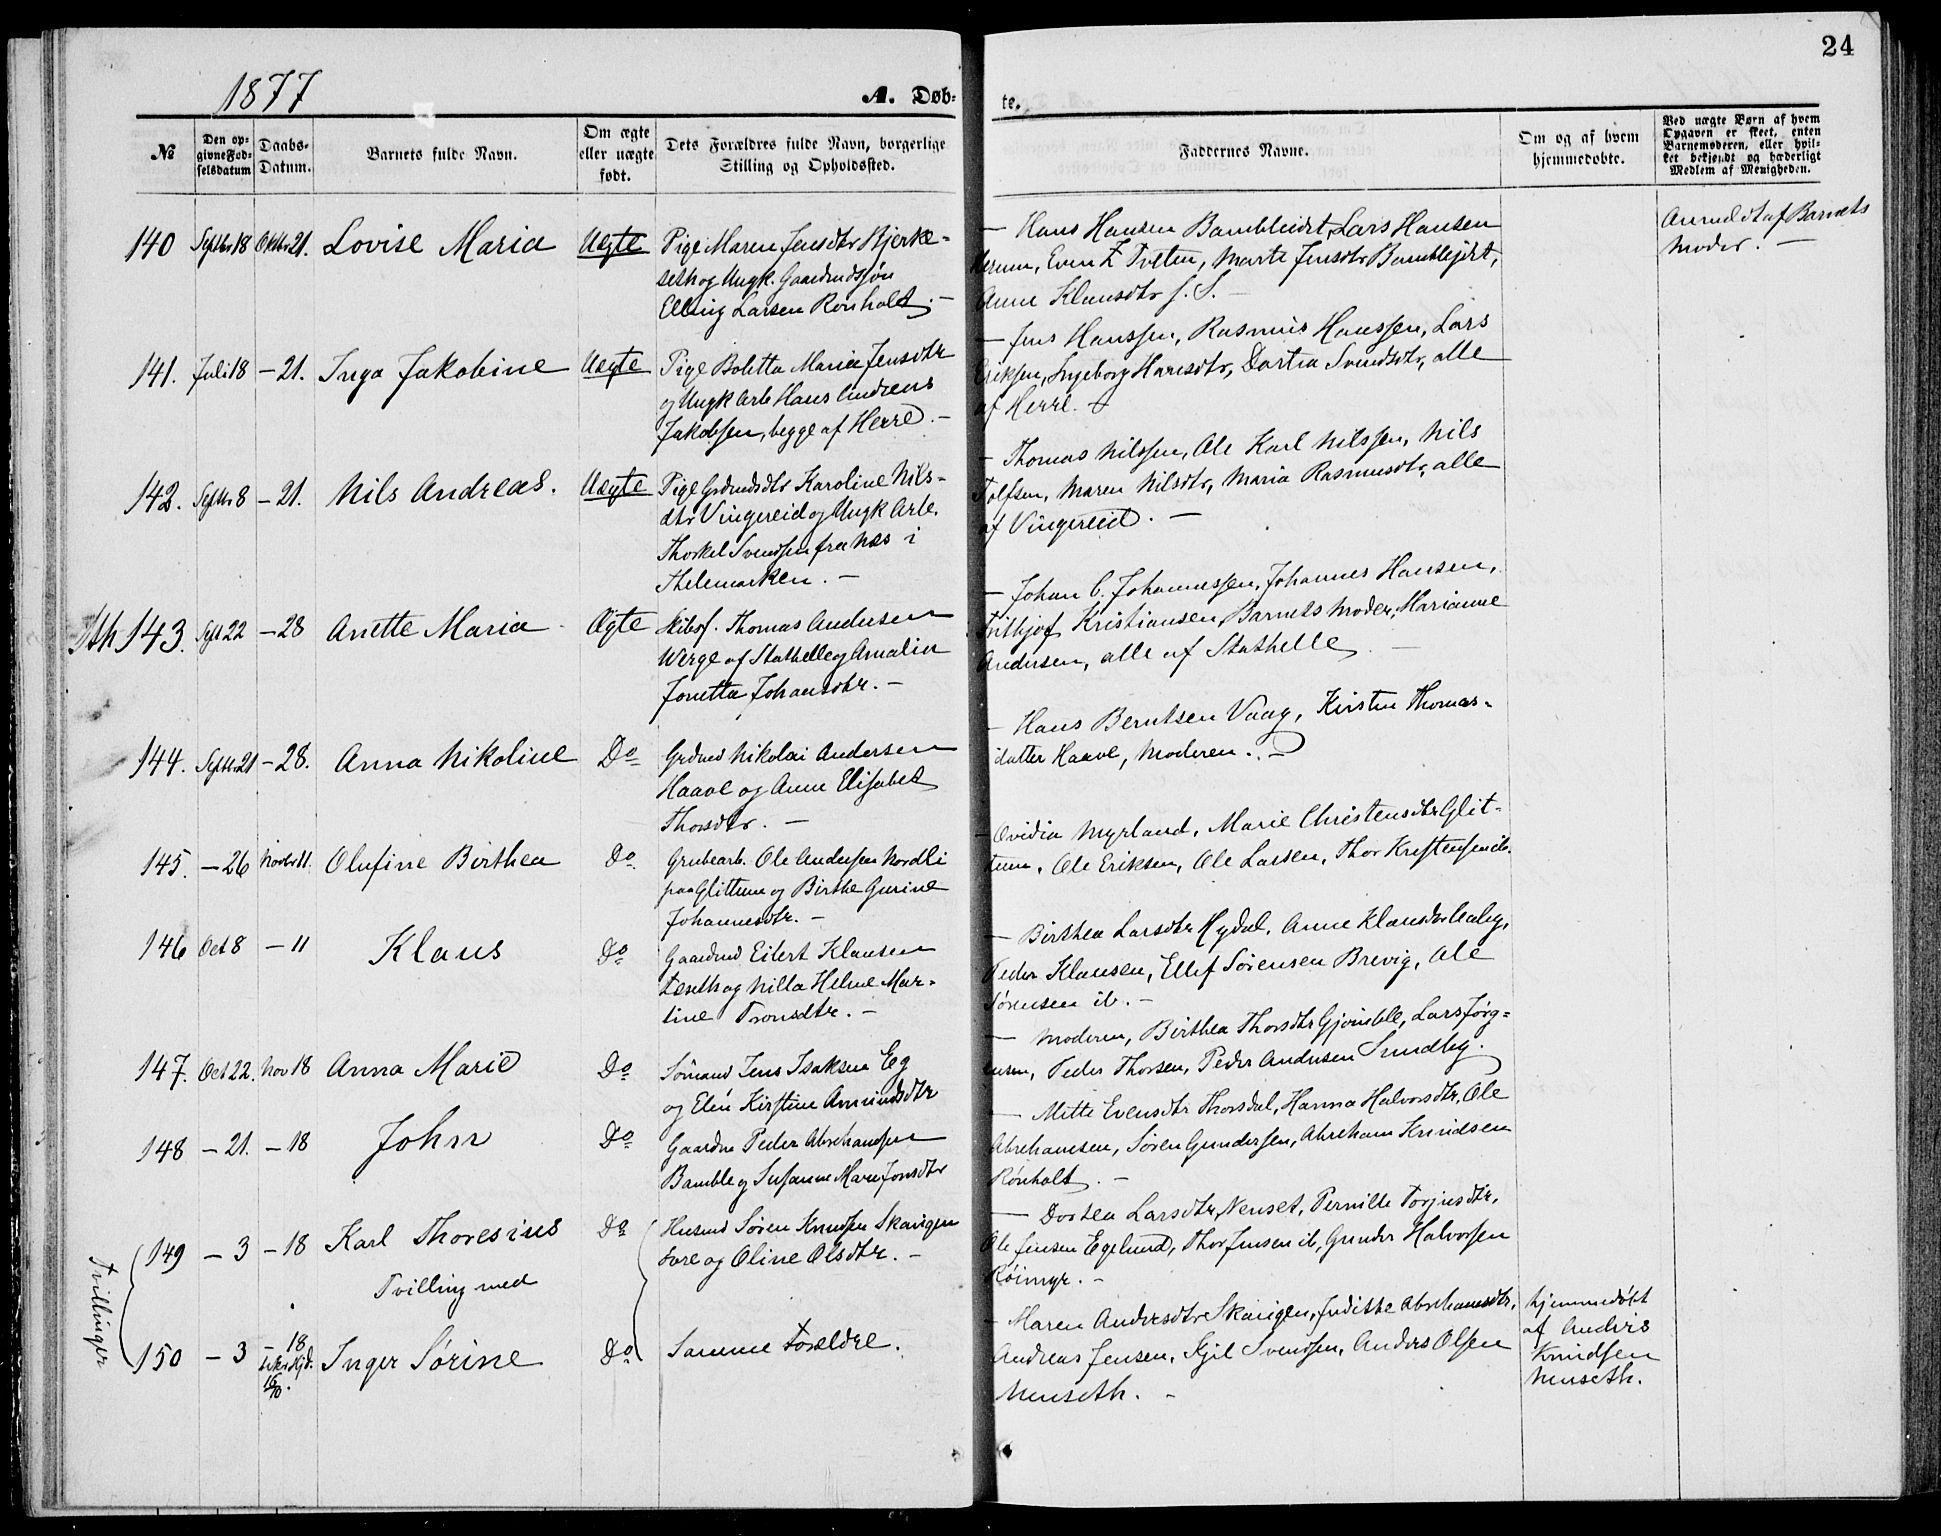 24
1877
A. Døb-
te.
№
Den op-
givne Fød-
selsdatum
Daabs-
Datum.
Barnets fulde Navn.
Om ægte
eller uægte
født.
Dets Forældres fulde Navn, borgerlige
Stilling og Opholdssted.
Faddernes Navne.
Om og af hvem
hjemmedøbte.
Ved uægte Børn af hvem
Opgaven er skeet, enten
Barnemoderen, eller hvil-
ket bekjendt og hæderligt
Medlem af Menigheden.
140 Septbr 18 Oktbr 21. Lovise Maria Uægte
Pige Maren Jensdtr Bjerke-
seth og Ungk. Gaardmdssøn
Elling Larsen Rønholt. -
- Hans Hansen Bambleidet, Lars Hansen
Herum, Even Z Tveten, Marte Jensdtr Bamblejdet,
Anne Klausdtr s. S. -
Anmeldt af Barnets
Moder. -
141. Juli 18 - 21. Inga Jakobine Uægte
Pige Boletta Maria Jensdtr
og Ungk Arb Hans Andreas
Jakobsen, begge af Herre. -
- Jens Hanssen, Rasmus Hanssen, Lars
Eriksen, Ingeborg Hansdtr, Dortea Svendsdtr, alle
af Herre.
142. Septbr 8 - 21. Nils Andreas. Uægte
Pige Grdmdsdtr Karoline Nils-
dtr Vingereid og Ungk Arb.
Thorkel Svendsen fra Næs i
Thelemarken. -
- Thomas Nilssen, Ole Karl Nilssen, Nils
Tolfsen, Maren Nilsdtr, Maria Rasmusdtr, alle
af Vingereid. -
Sth 143. Sept 22 - 28 Anette Maria Ægte
Skibsf. Thomas Andersen
Werge af Stathelle og Amalia
Jonetta Johansdtr. -
- Johan C. Johannessen, Johannes Hansen,
Fritjof Kristiansen, Barnets Moder, Marianne
Andersen, alle af Stathelle. -
144. Septbr 21 - 28. Anna Nikoline Do
Grdmd Nikolai Andersen
Haave og Anne Elisabet
Thorsdtr. -
- Hans Berntsen Vaag, Kirsten Thomas-
datter Haave, Moderen. -
145. - 26 Novbr 11. Olufine Birthea Do
Grubearb. Ole Andersen Nordli
paa Glittum og Birthe Gurine
Johannesdtr. -
- Ovidia Myrland, Marie Christensdtr Glit-
tum, Ole Eriksen, Ole Larsen, Thor Kristensen ib.
146 Oct 8 - 11 Klaus Do
Gaardmd Eilert Klausen
Leseth og Nilla Helene Mar-
tine Tronsdtr. -
- Birthea Larsdtr Hydal, Anne Klausdtr
Peder Klausen, Ellef Sørensen Brevig, Ole
Sørensen ib. -
147. Oct 22. Nov 18 Anna Marie Do
Sømand Jens Isaksen Eg
og Elen Kirstine Amundsdtr
- Moderen, Birthea Thorsdtr Gjømble, Lars Jørg-
ensen, Peder Thorsen, Peder Andersen Sundby.
148 - 21. - 18 John Do
Gaardm Peder Abrahamsen
Bamble og Susanne Marie Jonsdtr
- Mette Evensdtr Thorsdal, Hanna Halvorsdtr, Ole
Abrehamsen, Søren Gundersen, Abreham Knudsen
Rønholt. -
Tvillinger
149 - 3 - 18 Karl Thoresius Do
Tvilling med
Husmd Søren Knudsen Skaugen
Fore og Oline Olsdtr. -
- Dortea Larsdtr Nenset, Pernille Torjusdtr,
Ole Jensen Egelund, Thor Jensen ib, Gunder Halvorsen
Røimyr. -
150 - 3 - 18 Inger Sørine Do
Hjd.
16/10.
Samme Forældre.
- Maren Andersdtr Skaugen, Judithe Abrehamsdtr,
Andreas Jensen, Kjil Svendsen, Anders Olsen
Nenseth. -
Hjemmedøbt
af Anders
Knudsen
Nenseth.